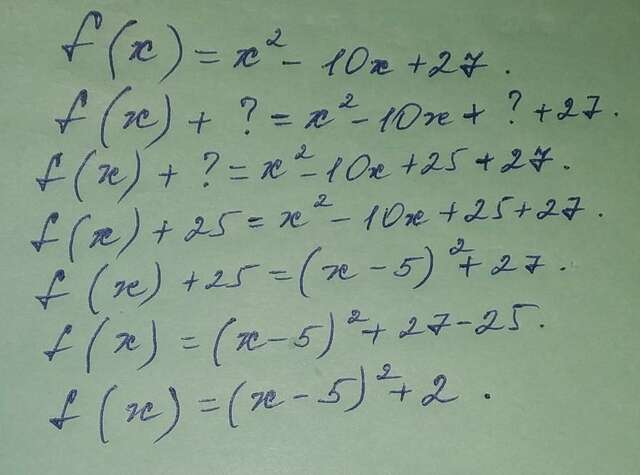 f(x) = x² - 10x + 27.
f(x) + ? = x² - 10x + ? + 27.
f(x) + ? = x² - 10x + 25 + 27.
f(x) + 25 = x² - 10x + 25 + 27.
f(x) + 25 = (x - 5)² + 27.
f(x) = (x - 5)² + 27 - 25.
f(x) = (x - 5)² + 2.